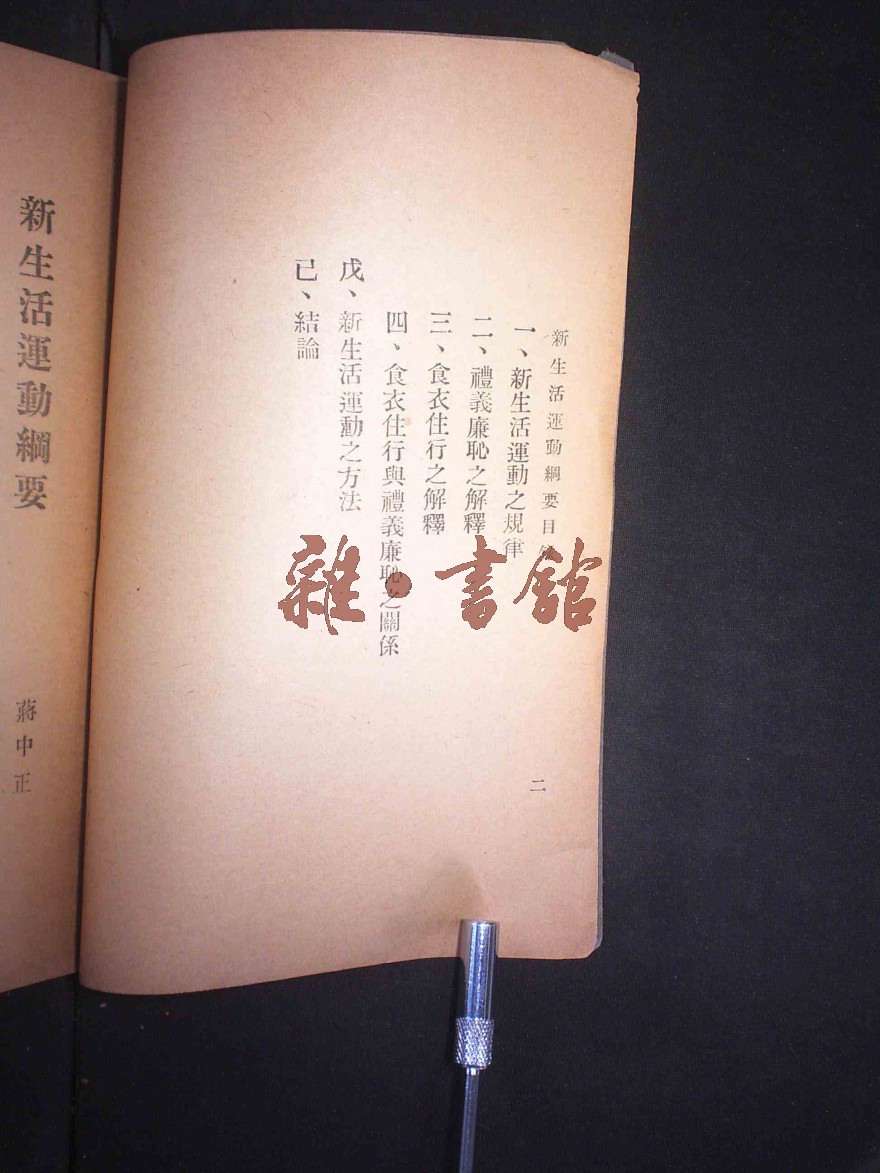 新生活運動綱要目錄
一、新生活運動之規律
二、禮義廉恥之解釋
三、食衣住行之解釋
四、食衣住行與禮義廉恥之關係
戊、新生活運動之方法
己、結論
二
新生活運動綱要
蔣中正
雜·書館